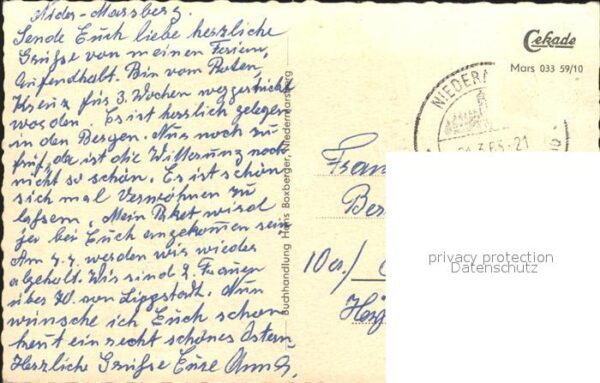 Nider-Marsberg.
Sende Euch liebe herzliche
Grüße von meinen Ferien,
Aufendhalt. Bin vom Roten,
Kreuz für 3. Wochen weggeschickt
worden. Es ist herrlich gelegen
in den Bergen. Nur noch zu
früh, da ist die Witterung noch
nicht so schön. Es ist schön
sich mal Verwöhnen zu
laßsem. Mein Paket wird
ja bei Euch angekommen sein.
Am 4.4. werden wir wieder
abgeholt. Wir sind 2. Frauen
über 70. von Lippstadt. Nun
wünsche ich Euch schon
heut ein recht schönes Ostern.
Herzliche Grüße Eure Anna.
Buchhandlung Hans Boxberger, Niedermarsberg
Cekade
Mars 033 59/10
NIEDERM
3.65-21
Fran
Ber
10 cr/
privacy protection
Datenschutz